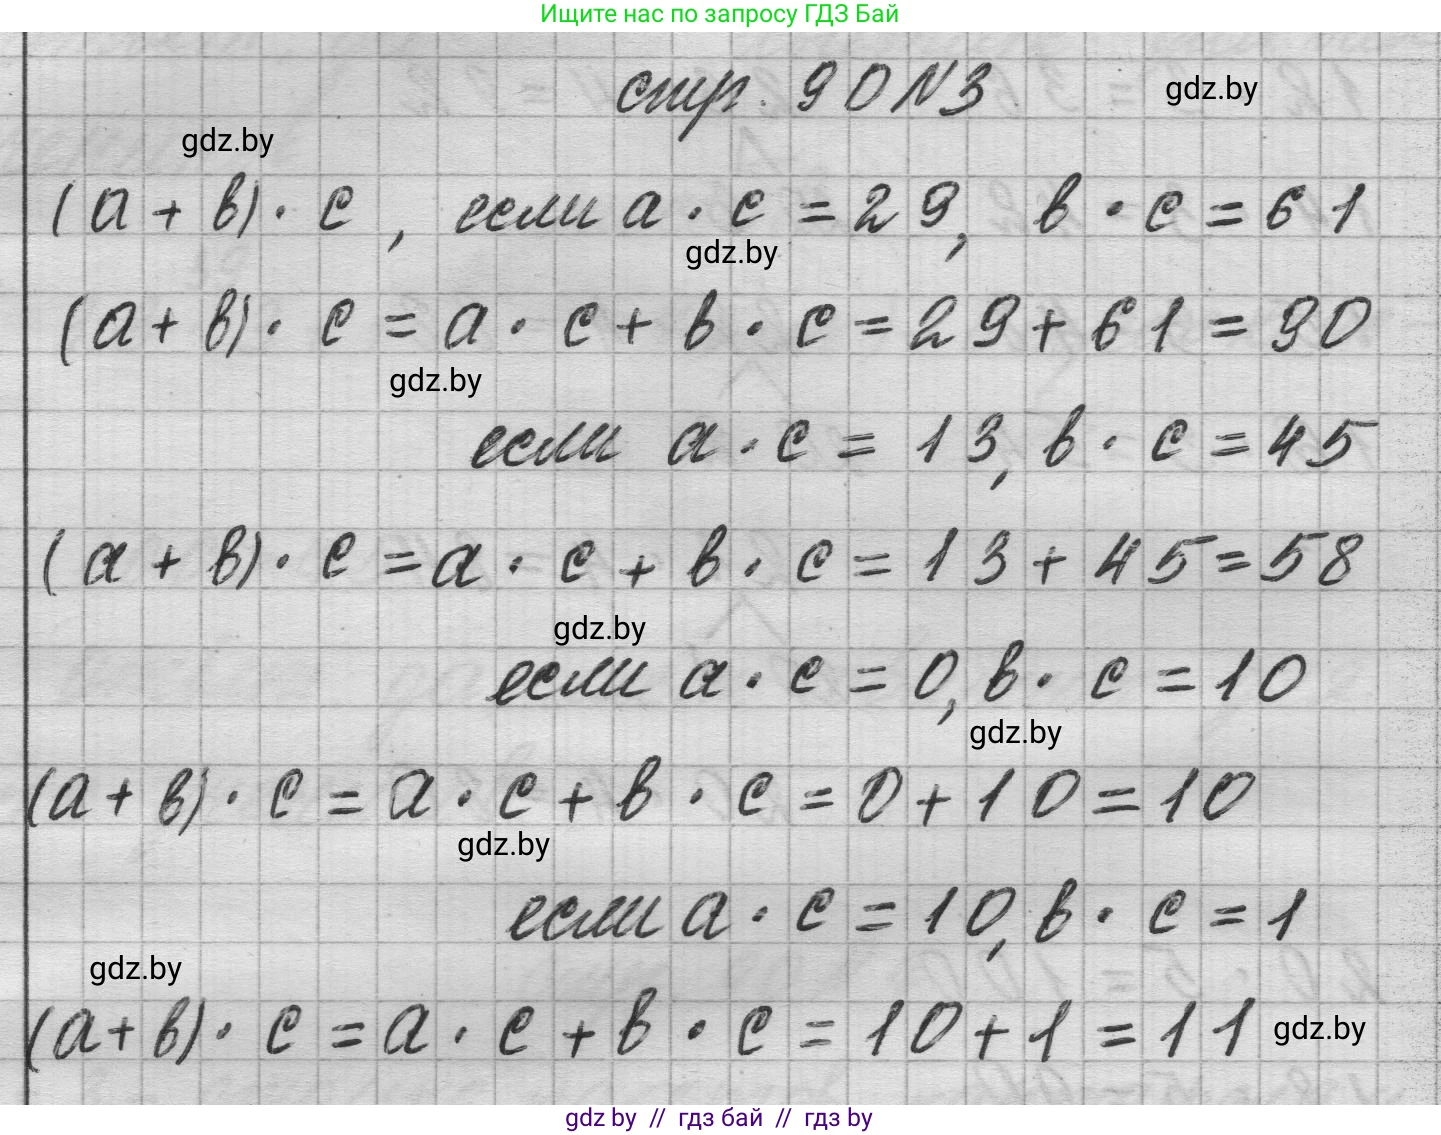 Ищите нас по запросу ГДЗ Бай
стр. 90 N3
gdz.by
gdz.by
(a + в) · c , если a · c = 29, в · c = 61
gdz.by
(a + в) · c = a · c + в · c = 29 + 61 = 90
gdz.by
если a · c = 13, в · c = 45
(a + в) · c = a · c + в · c = 13 + 45 = 58
gdz.by
если a · c = 0, в · c = 10
gdz.by
(a + в) · c = a · c + в · c = 0 + 10 = 10
gdz.by
если a · c = 10, в · c = 1
gdz.by
(a + в) · c = a · c + в · c = 10 + 1 = 11
gdz.by
gdz by // гдз бай // гдз by